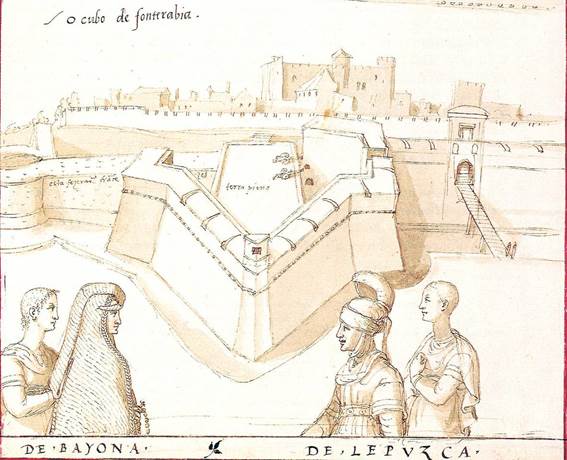 o cubo de fonterabia.
terra pieno
DE·BAYONA·
DE·LEPVZCA·